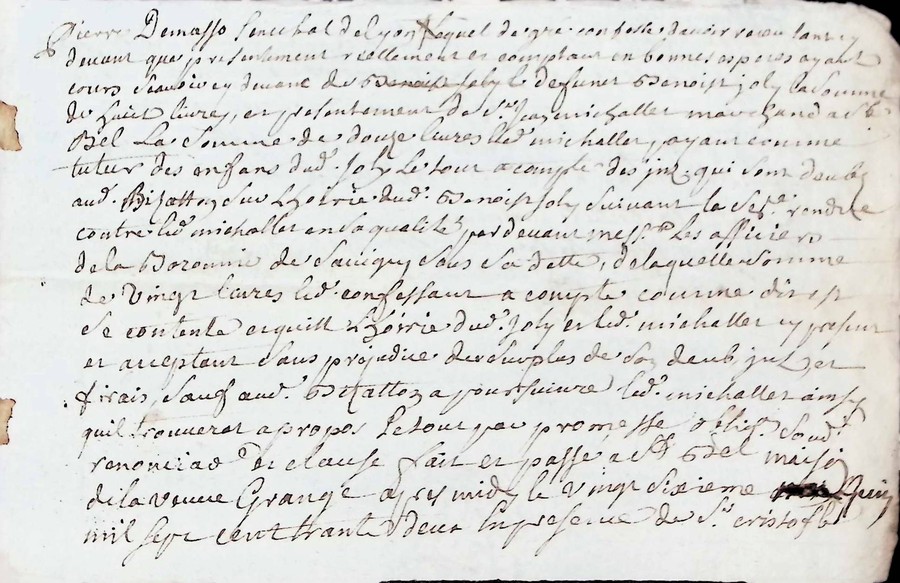 Pierre Demasso Senechal de Lyon lequel de gré confesse davoir receu tant cy
devant que presentement reellement et comptant en bonnes especes ayant
cours scavoir cy devant de Benoist Joly defunct Benoist joly la somme
de huit livres, et presentement de Sr. Jean michallet marchand a St.
Bel La Somme de douze livres led. michallet, ayant comme
tuteur des enfans dud. Joly Le tout a compte des qui sont deubs
aud. Bizatton sur Lhoirie dud. Benoist Joly suivant la rendue
contre led. michallet en sa qualité pardevant mess. Les officiers
de la Baronnie de Savigny sans sa dette, de laquelle somme
de vingt livres led. confessant a compte comme dit est
se contente et quitte Lhoirie dud. Joly et led. michallet cy present
et acceptant sans prejudice du surplus de son deub et
frais, sauf aud. Bizatton a poursuivre led. michallet ainsy
quil trouverat a propos Le tout par promesse oblig. soud.
renonciaõ et clause fait et passé a St. Bel maison
de la veuve Grange apres midy le vingt sixieme Juin
mil sept cent trante deux En presence de Sr. cristofle